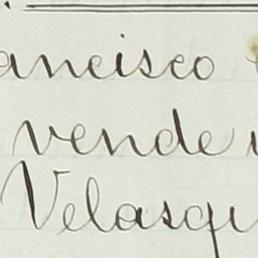 ancisco
vende
Velasqu